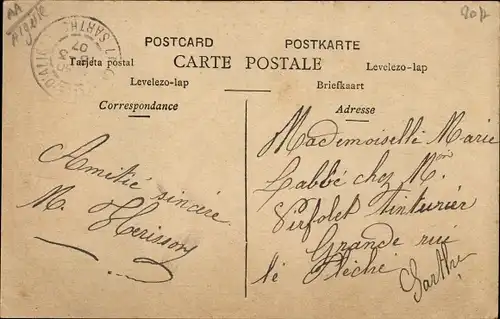 POSTCARD POSTKARTE
Tarjeta postal CARTE POSTALE Levelezo-lap
Levelezo-lap Briefkaart
Correspondance Adresse
Amitié sincère
M. Herisson
Mademoiselle Marie
Labbé chez Mm
Virfolet tinturier
Grande rue
lé Flèche
Sarthe